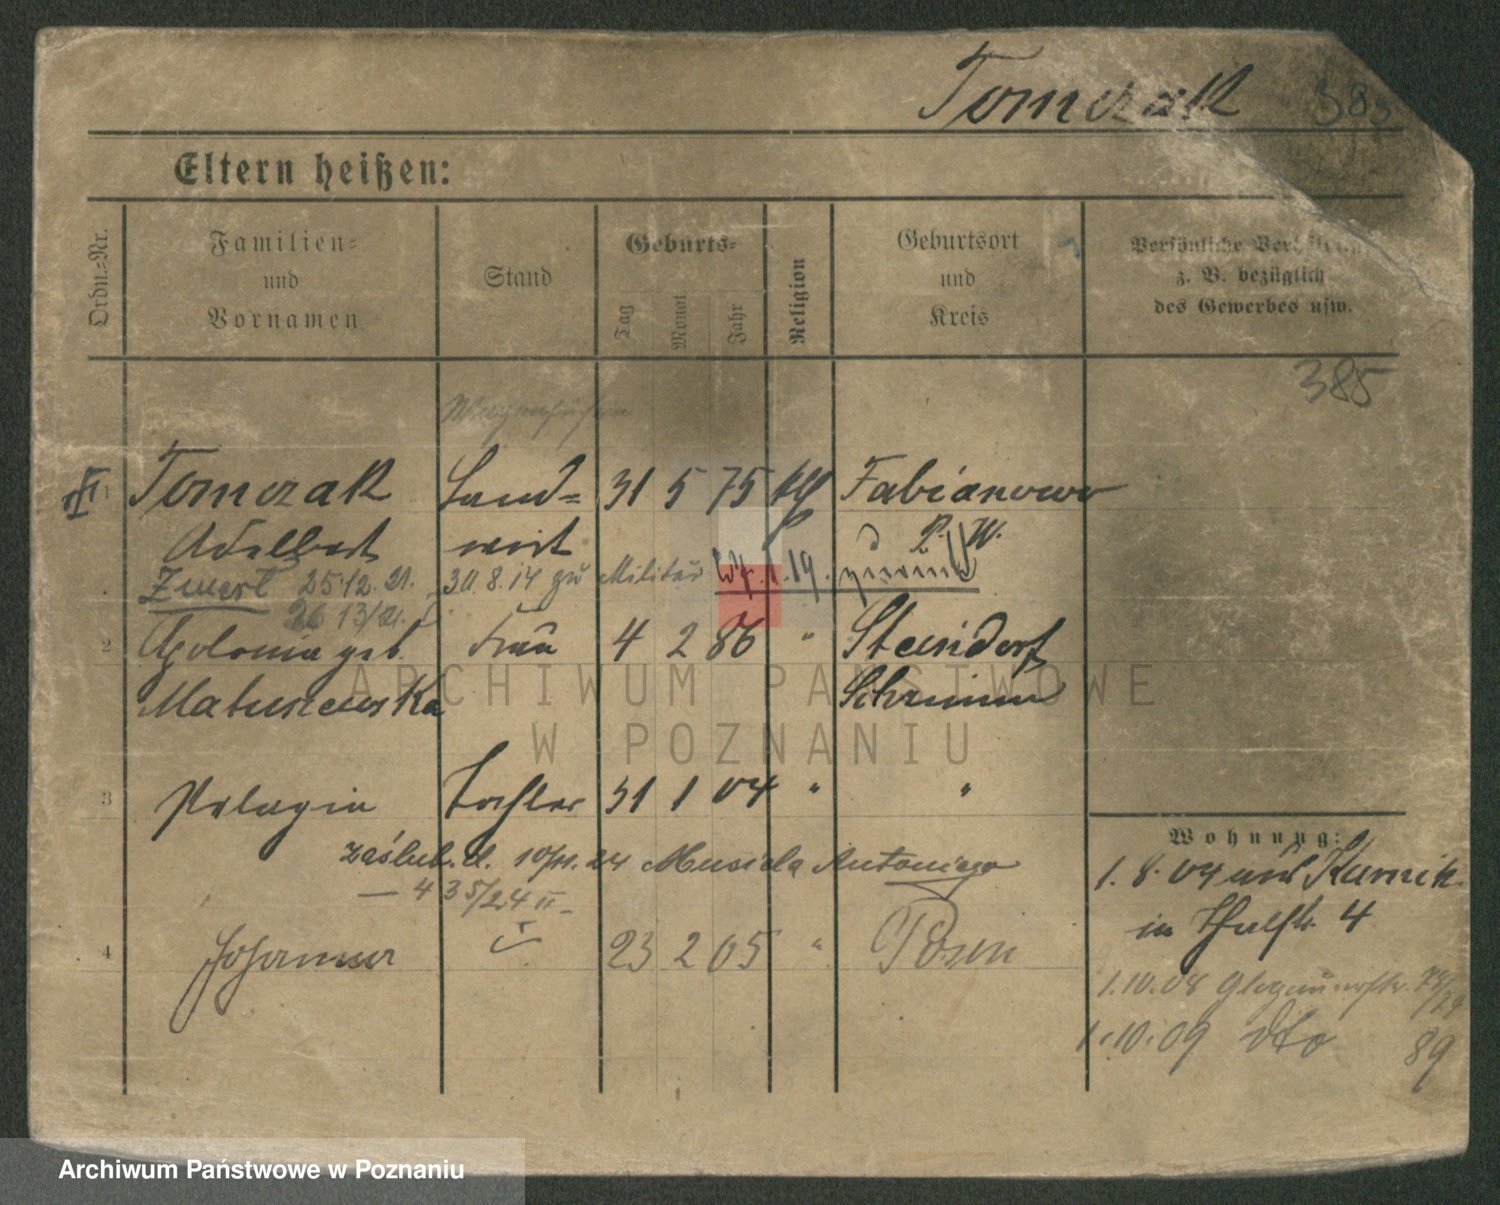 Tomczak 385
Eltern heißen:
Ordn=Nr.
Familien= und Vornamen
Stand
Geburts=
Tag
Monat
Jahr
Religion
Geburtsort und Kreis
Persönliche
z. B. bezüglich
des Gewerbes usw.
385
1 Tomczak Land= 31 5 75 kth Fabianowo
Adalbert wirt P. W.
Zmarł 25.12.21. 30.8.14 zu Militär 1.19. zurück
26 13/21.
2 Apolonia geb. Frau 4 2 86 " Steindorf
Matuszewska Schrimm
3 Pelagia Tochter 31 1 04 " "
zaślub. d. 10/11.24 Musiela Antoniego
— 435/24 II —
4 Johanna 23 2 05 " Posen
Wohnung:
1.8.04 aus Kurnik
in Thalstr. 4
1.10.08 Glogauerstr. 78/79
1.10.09 dto 89
ARCHIWUM PAŃSTWOWE
W POZNANIU
Archiwum Państwowe w Poznaniu